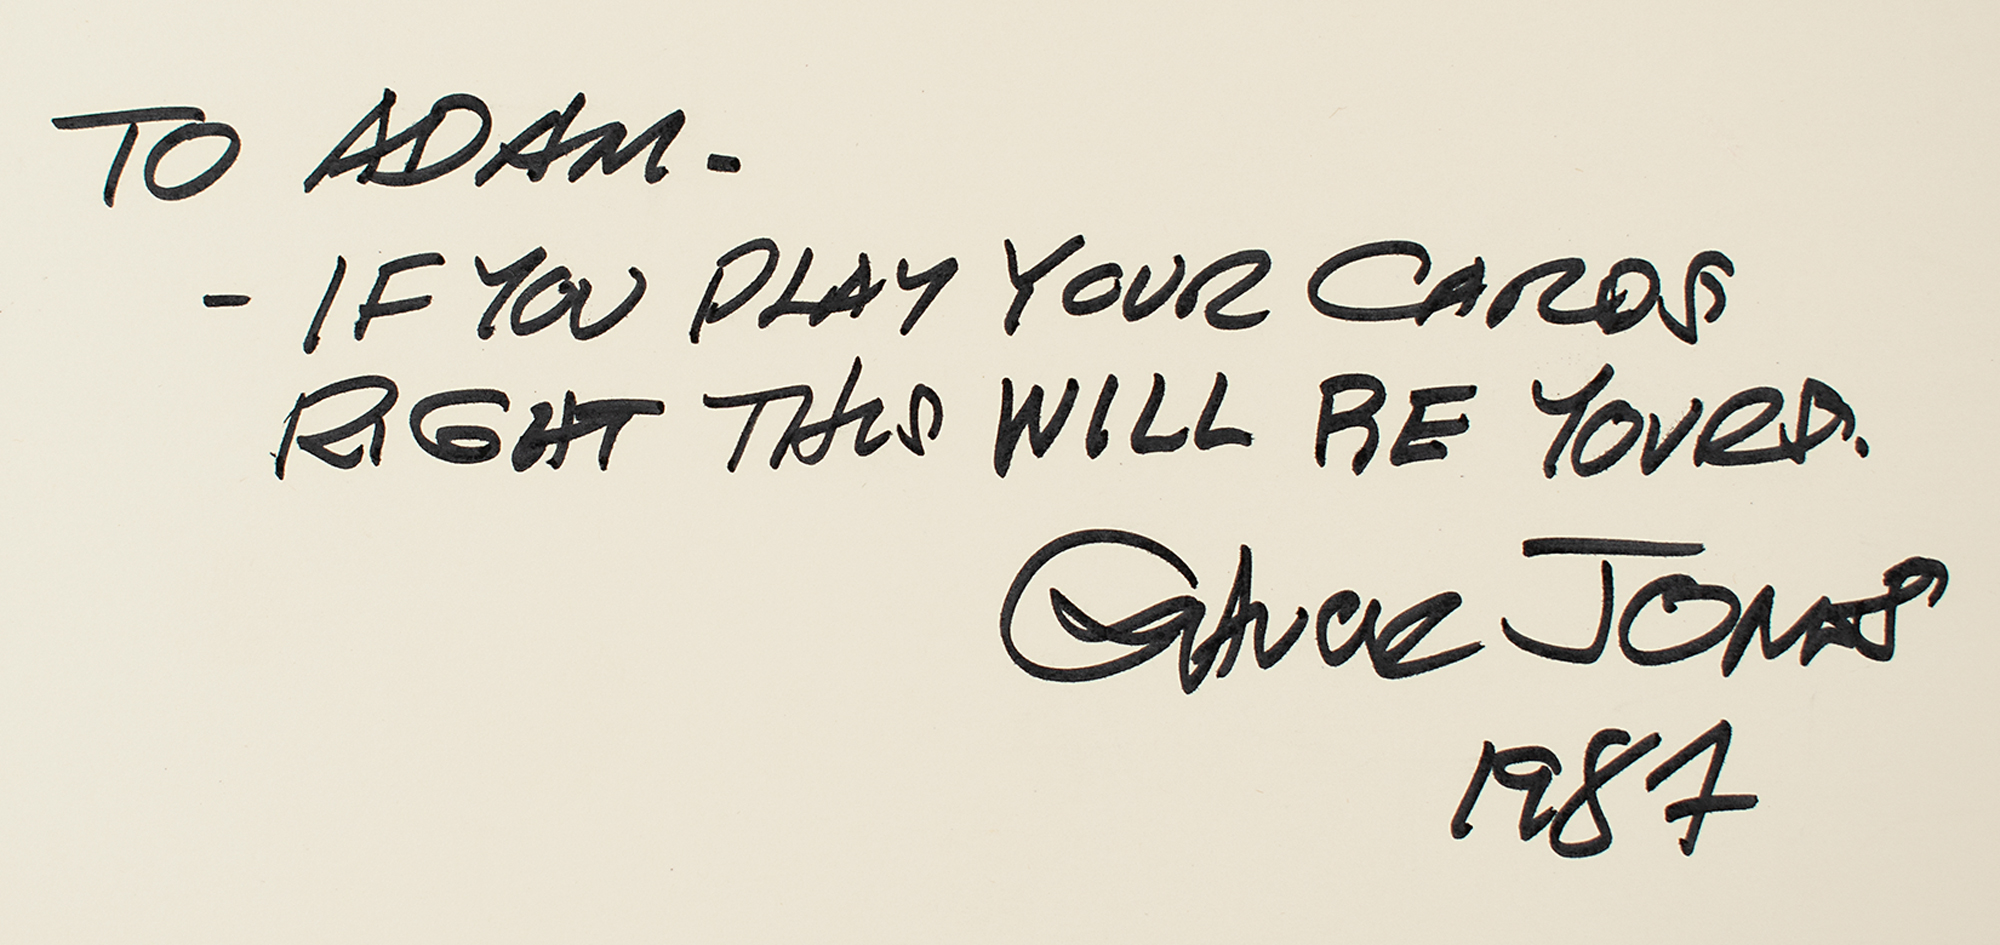 TO ADAM-
- IF YOU PLAY YOUR CARDS
RIGHT THIS WILL BE YOURS.
CHUCK JONES
1987